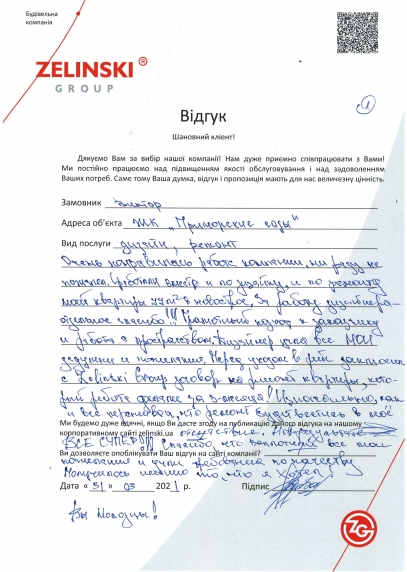 Будівельна
компанія
ZELINSKI®
GROUP
1
Відгук
Шановний клієнт!
Дякуємо Вам за вибір нашої компанії! Нам дуже приємно співпрацювати з Вами!
Ми постійно працюємо над підвищенням якості обслуговування і над задоволенням
Ваших потреб. Саме тому Ваша думка, відгук і пропозиція мають для нас величезну цінність.
Замовник Виктор
Адреса об'єкта ЖК „Приморские сады"
Вид послуги дизайн, ремонт
Очень понравилась работа компании, ни разу не
пожалел. Работали вместе и по дизайну, и по ремонту
моей квартиры 77 м² в новострое. За работу дизайнера
отдельное спасибо!!! Грамотный подход к заказчику
и работа с пространством. Дизайнер учла все МОИ
задумки и пожелания. Перед уходом в рейс заключили
с Zelinski Group договор на ремонт квартиры, кото-
рый ребята сделали за 5 месяца! Изначально, как
и все переживал, что ремонт будет вестись в моё
Ми будемо дуже вдячні, якщо Ви дасте згоду на публикацію даного відгука на нашому
корпоративному сайті zelinski.ua отсутствие.
ВСЕ СУПЕР!!! Спасибо, что воплотили все мои
Ви дозволяєте опублікувати Ваш відгук на сайті компанії?
пожелания и учли по качеству
именно то, что я хотел!
Дата « 31 » 03 2021 р. Підпис
Вы Молодцы!
ZG